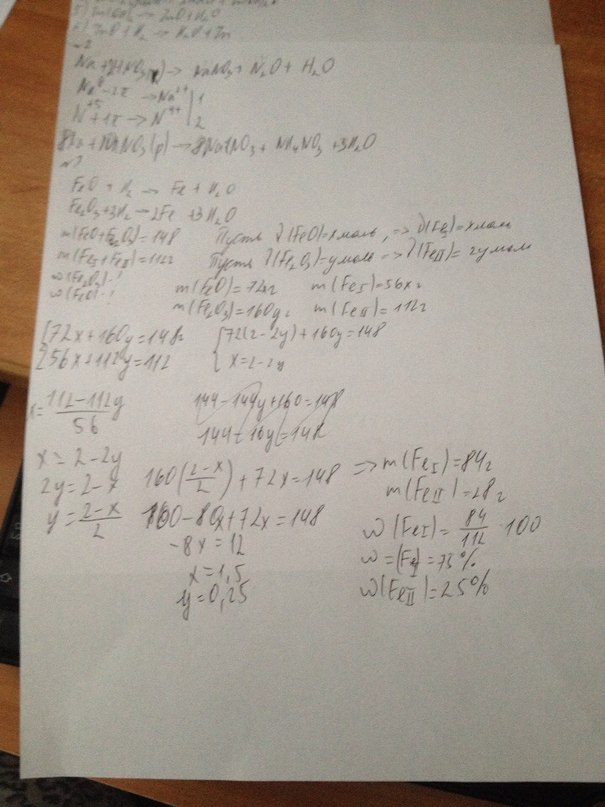 ZnO + H₂ → H₂O + Zn
Na + HNO₃(p) → NaNO₃ + N₂O + H₂O
N⁺⁵ + 1e → N⁺⁴ | 2
8Na + 10HNO₃(p) → 8NaNO₃ + NH₄NO₃ + 3H₂O
FeO + H₂ → Fe + H₂O
Fe₂O₃ + 3H₂ → 2Fe + 3H₂O
m(FeO + Fe₂O₃) = 148 Пусть ν(FeO) = x моль, => ν(FeI) = x моль
m(FeI + FeII) = 112г Пусть ν(Fe₂O₃) = y моль => ν(FeII) = 2y моль
ω(Fe₂O₃) - ? m(FeO) = 72xг m(FeI) = 56xг
ω(FeO) - ? m(Fe₂O₃) = 160yг m(FeII) = 112г
{72x + 160y = 148г {72(2-2y) + 160y = 148
{56x + 112y = 112 {x = 2-2y
x = (112-112y)/56 144 - 144y + 160 = 148
144 + 16y = 148
x = 2-2y 160((2-x)/2) + 72x = 148 => m(FeI) = 84г
2y = 2-x m(FeII) = 28г
y = (2-x)/2 160 - 80x + 72x = 148 ω(FeI) = 84/112 · 100
-8x = 12 ω = (FeI) = 73%
x = 1,5 ω(FeII) = 25%
y = 0,25